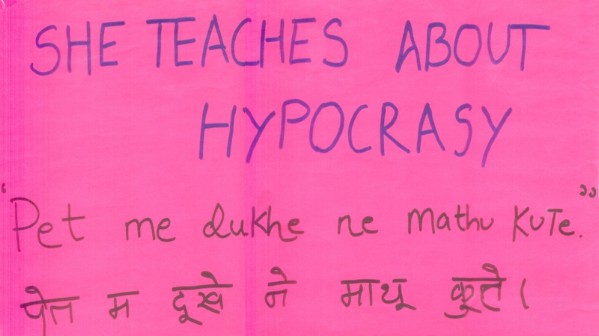 SHE TEACHES ABOUT
HYPOCRASY
"Pet me dukhe ne mathu kute."
पेत म दूखे ने माथू कूते।